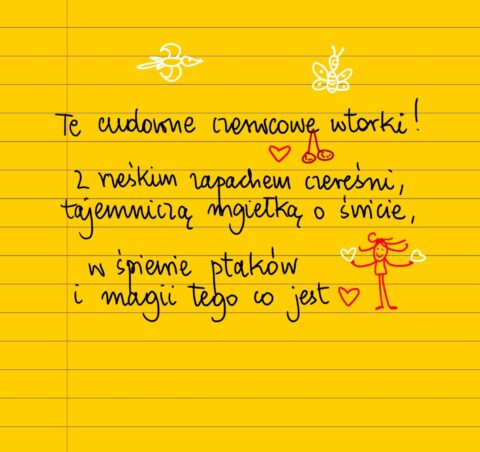 Te cudowne czerwcowe wtorki!
z rześkim zapachem czereśni,
tajemniczą mgiełką o świcie,
w śpiewie ptaków
i magii tego co jest